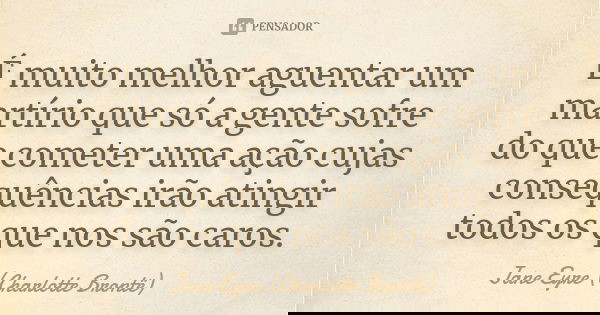 PENSADOR
É muito melhor aguentar um
martírio que só a gente sofre
do que cometer uma ação cujas
consequências irão atingir
todos os que nos são caros.
Jane Eyre (Charlotte Brontë)